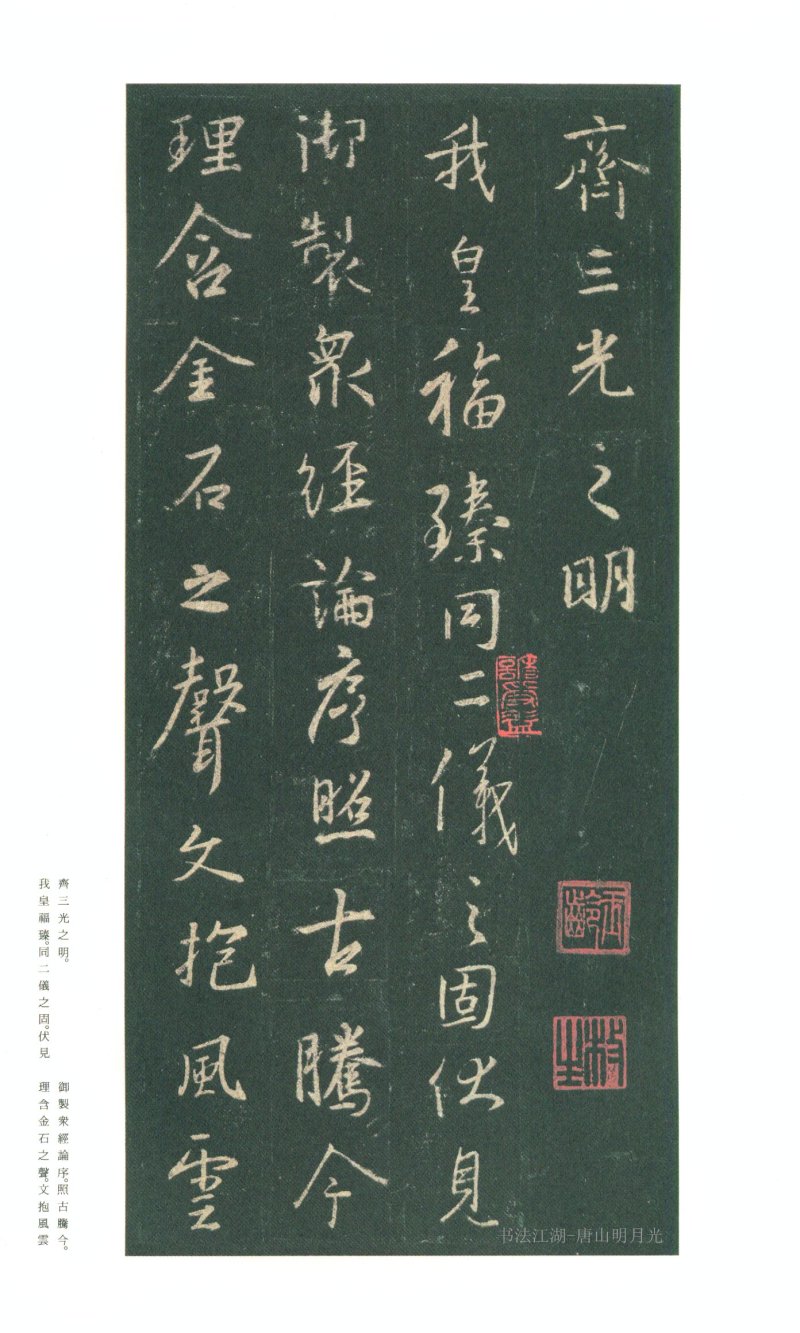 齊三光之明
我皇福臻同二儀之固伏見
御製衆經論序照古騰今
理含金石之聲文抱風雲
齊三光之明。
我皇福臻。同二儀之固。伏見
御製衆經論序。照古騰今。
理含金石之聲。文抱風雲
书法江湖-唐山明月光